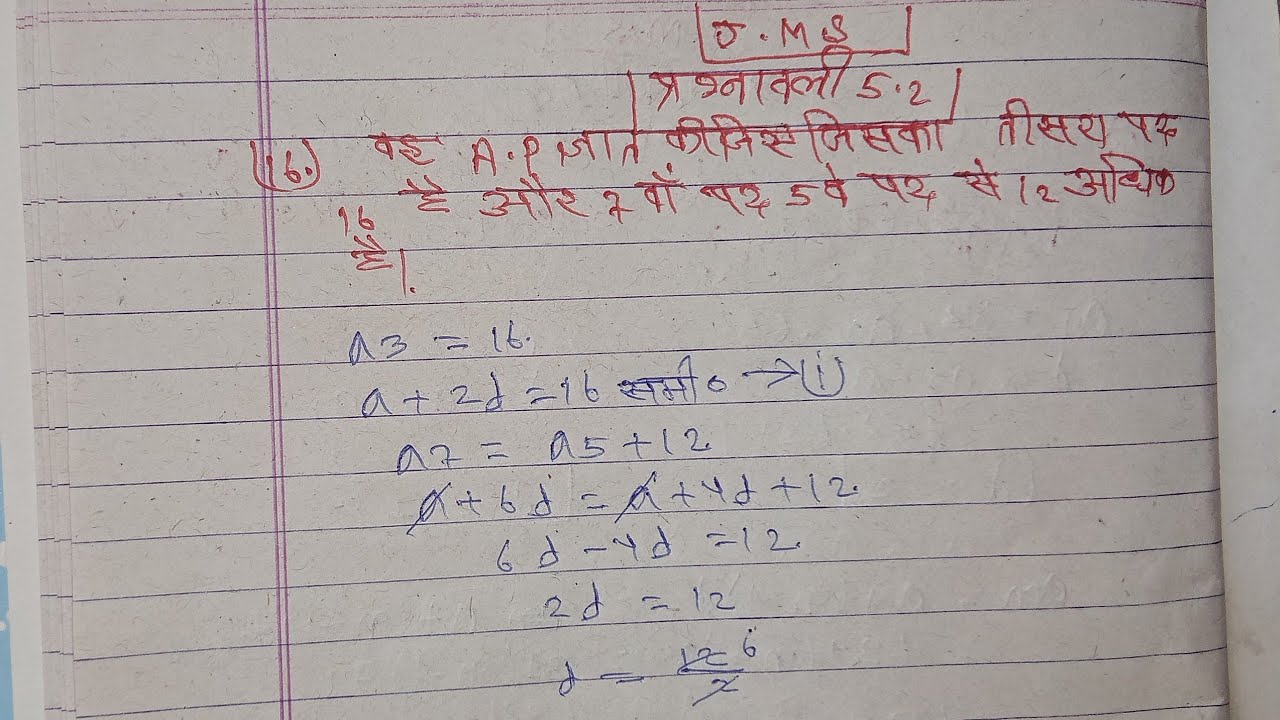 J.M.S
प्रश्नावली 5.2
(16.) वह A.P ज्ञात कीजिए जिसका तीसरा पद
16 है और 7 वाँ पद 5 वे पद से 12 अधिक
है।
a3 = 16.
a + 2d = 16 समी० →(i)
a7 = a5 + 12
a + 6d = a + 4d + 12.
6d - 4d = 12.
2d = 12
d = 12/2 6